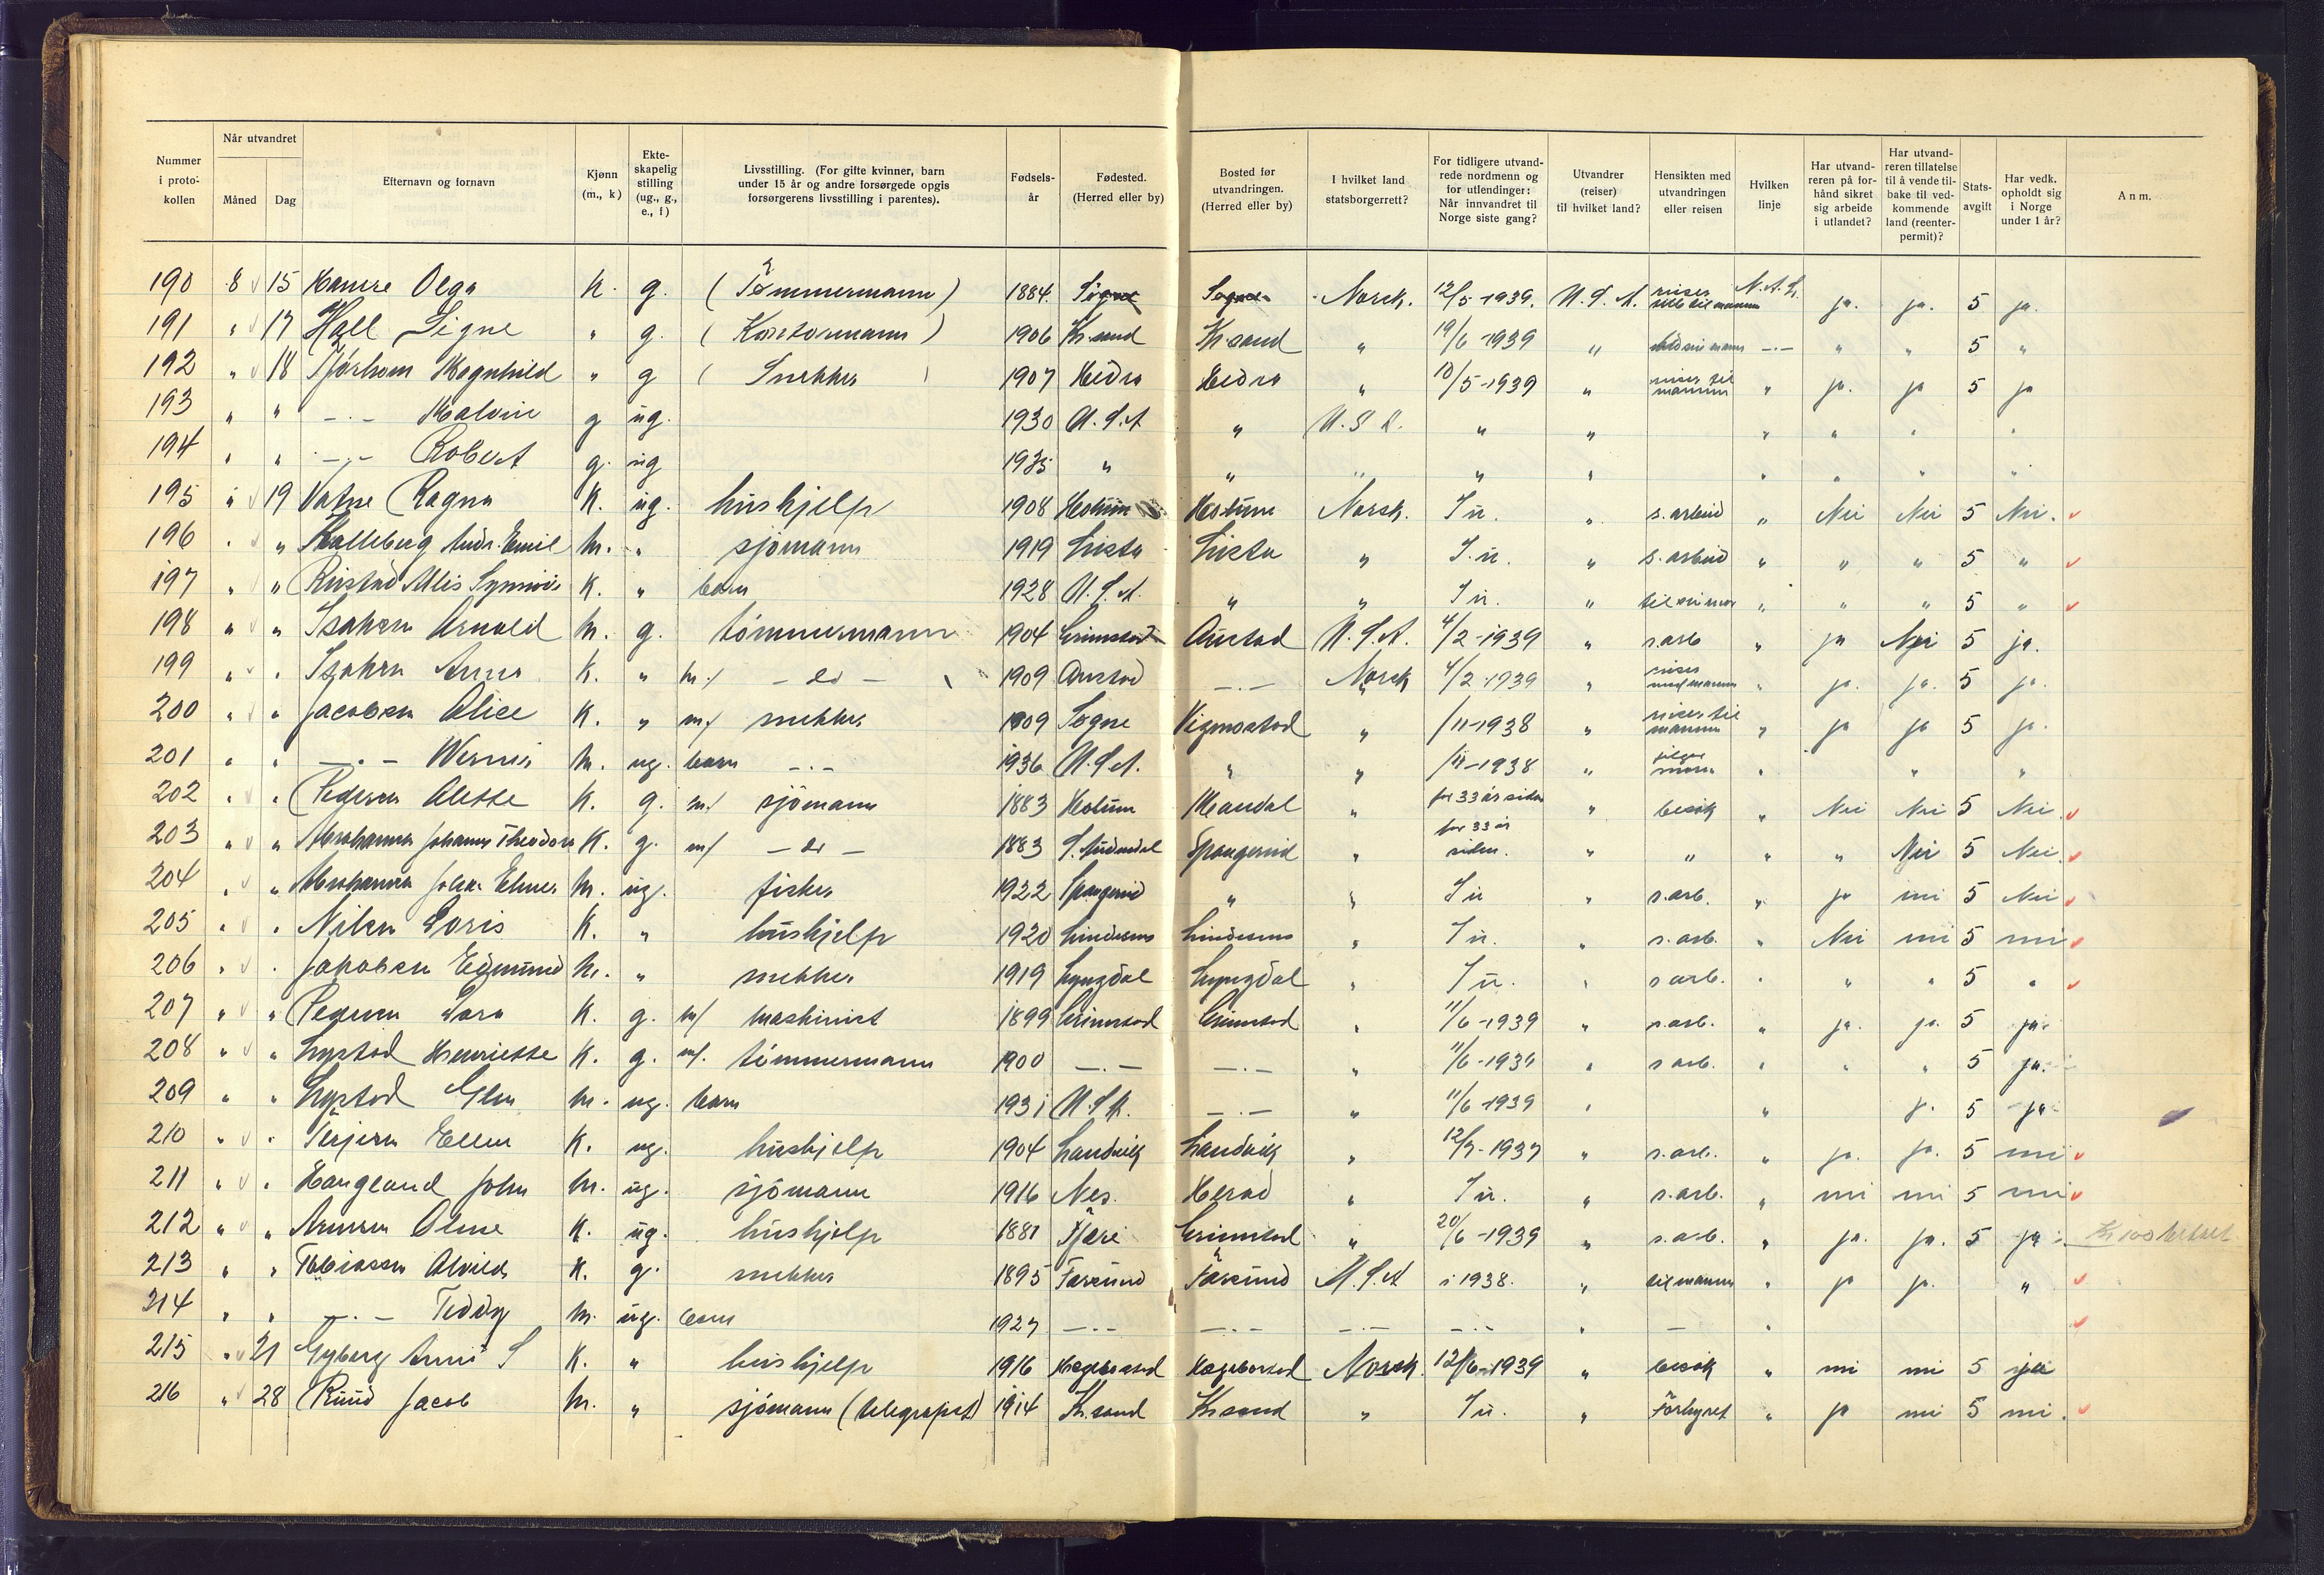 Nummer i proto-kollen | Når utvandret Måned | Dag | Efternavn og fornavn | Kjønn (m., k) | Ekte-skapelig stilling (ug., g., e., f) | Livsstilling. (For gifte kvinner, barn under 15 år og andre forsørgede opgis forsørgerens livsstilling i parentes). | Fødsels-år | Fødested. (Herred eller by) | Bosted før utvandringen. (Herred eller by) | I hvilket land statsborgerrett? | For tidligere utvand-rede nordmenn og for utlendinger: Når innvandret til Norge siste gang? | Utvandrer (reiser) til hvilket land? | Hensikten med utvandringen eller reisen | Hvilken linje | Har utvand-reren på for-hånd sikret sig arbeide i utlandet? | Har utvand-reren tillatelse til å vende til-bake til ved-kommende land (reenter-permit)? | Stats-avgift | Har vedk. opholdt sig i Norge under 1 år? | Anm.
190 8 15 Hamre Olga K. g. (Tømmermann) 1884 Søgne Søgne Norsk. 12/5-1939. U.S.A. N.A.L. ja. ja. 5 ja.
191 " 17 Hall Signe " g. (Kontormann) 1906 Kr.sand Kr.sand " 19/6-1939 " -"- " " 5 "
192 " 18 Magnhild " g (Snekker) 1907 Hidra Hidra " 10/5-1939 " reiser til mannen " ja. ja 5 ja
193 " " -"- Malvin g ug. 1930 U.S.A " U.S.A. " " " " " "
194 " " -"- Robert g. ug 1935 " " " " " " " " "
195 " 19 Vatne Ragna K. ug. hushjelp 1908 Holum Holum Norsk. I u. " s. arbeid " Nei Nei 5 Nei.
196 " " Andr. Emil m. " sjømann 1919 Lista Lista " I u. " s. arbeid " " " 5 "
197 " " K. " barn 1928 U.S.A. " " I u. " til sin mor " " " 5 "
198 " " Isaksen Arnold m. g. tømmermann 1904 Grimstad Austad U.S.A. 4/2-1939 " s.arb " ja Nei 5 ja.
199 " " Isaksen Anna K. " m/ - do - 1909 Austad -"- Norsk 4/2-1939 " reiser med mannen " ja. ja. 5 ja.
200 " " Jacobsen Alice K. " m/ snekker 1909 Søgne Vigmostad " /11-1938 " reiser til mannen " ja ja 5 ja.
201 " " -"- m. ug. barn -"- 1936 U.S.A. " " /11-1938 " " " "
202 " " Pedersen Alette K. g. m/ sjømann 1883 Holum Mandal " for 33 år siden " besøk " Nei Nei 5 Nei.
203 " " Johanne Theodora K. g. m/ - do - 1883 S. Audnedal Spangereid " for 33 år siden. " " " " Nei 5 Nei.
204 " " m. ug. fisker 1922 Spangereid " " I u " s.arb. " ja nei 5 Nei
205 " " Nilsen Doris K. " hushjelp 1920 Lindesnes Lindesnes " I u. " s.arb. " Nei nei 5 nei
206 " " Jakobsen Edmund m. " snekker 1919 Lyngdal Lyngdal " I u. " s arb. " " " 5 "
207 " " Pedersen Sara K. g. m/ maskinist 1899 Grimstad Grimstad " 11/6-1939 " s.arb. " ja. ja. 5 ja.
208 " " Lystad Henriette K. g. m/. tømmermann 1900 -"- -"- " 11/6-1939 " s arb. " " " 5 ja.
209 " " Lystad Glen m. ug. barn 1931 U.S.A. -"- " 11/6-1939 " " j. 5 ja
210 " " Terjesen Ellen K. ug. hushjelp 1904 Landvik Landvik " 12/7-1937 " s.arb. " ja. ja. 5 nei
211 " " Haugland John m. ug. sjømann 1916 Nes. Herad " I u. " s.arb. " nei nei 5 nei
212 " " K. ug. hushjelp 1881 Fjære Grimstad " 20/6-1939 " s.arb. " ja. ja. 5 ja.
213 " " Tobiassen Alvilde K. g. snekker 1895 Farsund Farsund U.S.A i 1938. " til mannen " ja ja. "
214 " " -"- Teddy m. ug. barn 1927 -"- -"- -"- -"- " - "
215 " 21 Gyberg Anni S K. " hushjelp 1916 Hægebostad Hægebostad Norsk. 12/6-1939 " besøk " nei nei 5 ja
216 " 28 Ruud Jacob m. " sjømann (telegrafist) 1914 Kr.sand Kr.sand " I u. " Forhyret " ja nei 5 nei.